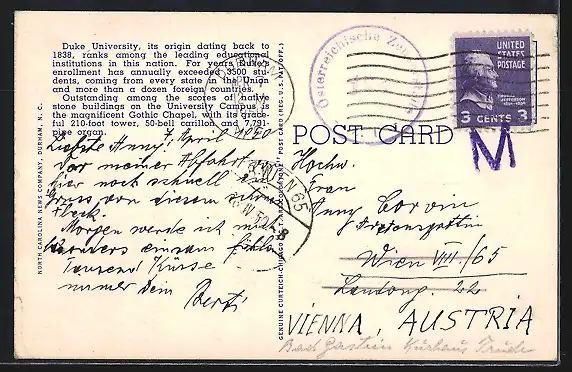 Duke University, its origin dating back to
1838, ranks among the leading educational
institutions in this nation. For years Duke's
enrollment has annually exceeded 3500 stu-
dents, coming from every state in the Union
and more than a dozen foreign countries.
Outstanding among the scores of native
stone buildings on the University Campus is
the magnificent Gothic Chapel, with its grace-
ful 210-foot tower, 50-bell carillon and 7,791-
pipe organ.
NORTH CAROLINA NEWS COMPANY, DURHAM, N. C.
7. April 1950
Liebste Anny!
Vor meiner Abfahrt
hier noch schnell ein
Gruss von diesem schönen
Fleck.
Morgen werde ich mich
besonders einsam fühlen
Tausend Küsse
immer dein Berti
GENUINE CURTEICH-CHICAGO POST CARD (REG. U.S. PAT. OFF.)
Österreichische
WIEN 65
8
UNITED
STATES
POSTAGE
JEFFERSON
3 CENTS 3
POST CARD
M
Hochw.
Frau
Anny Corvin
Wien VIII/65
22
VIENNA, AUSTRIA
Bad Gastein Kurhaus